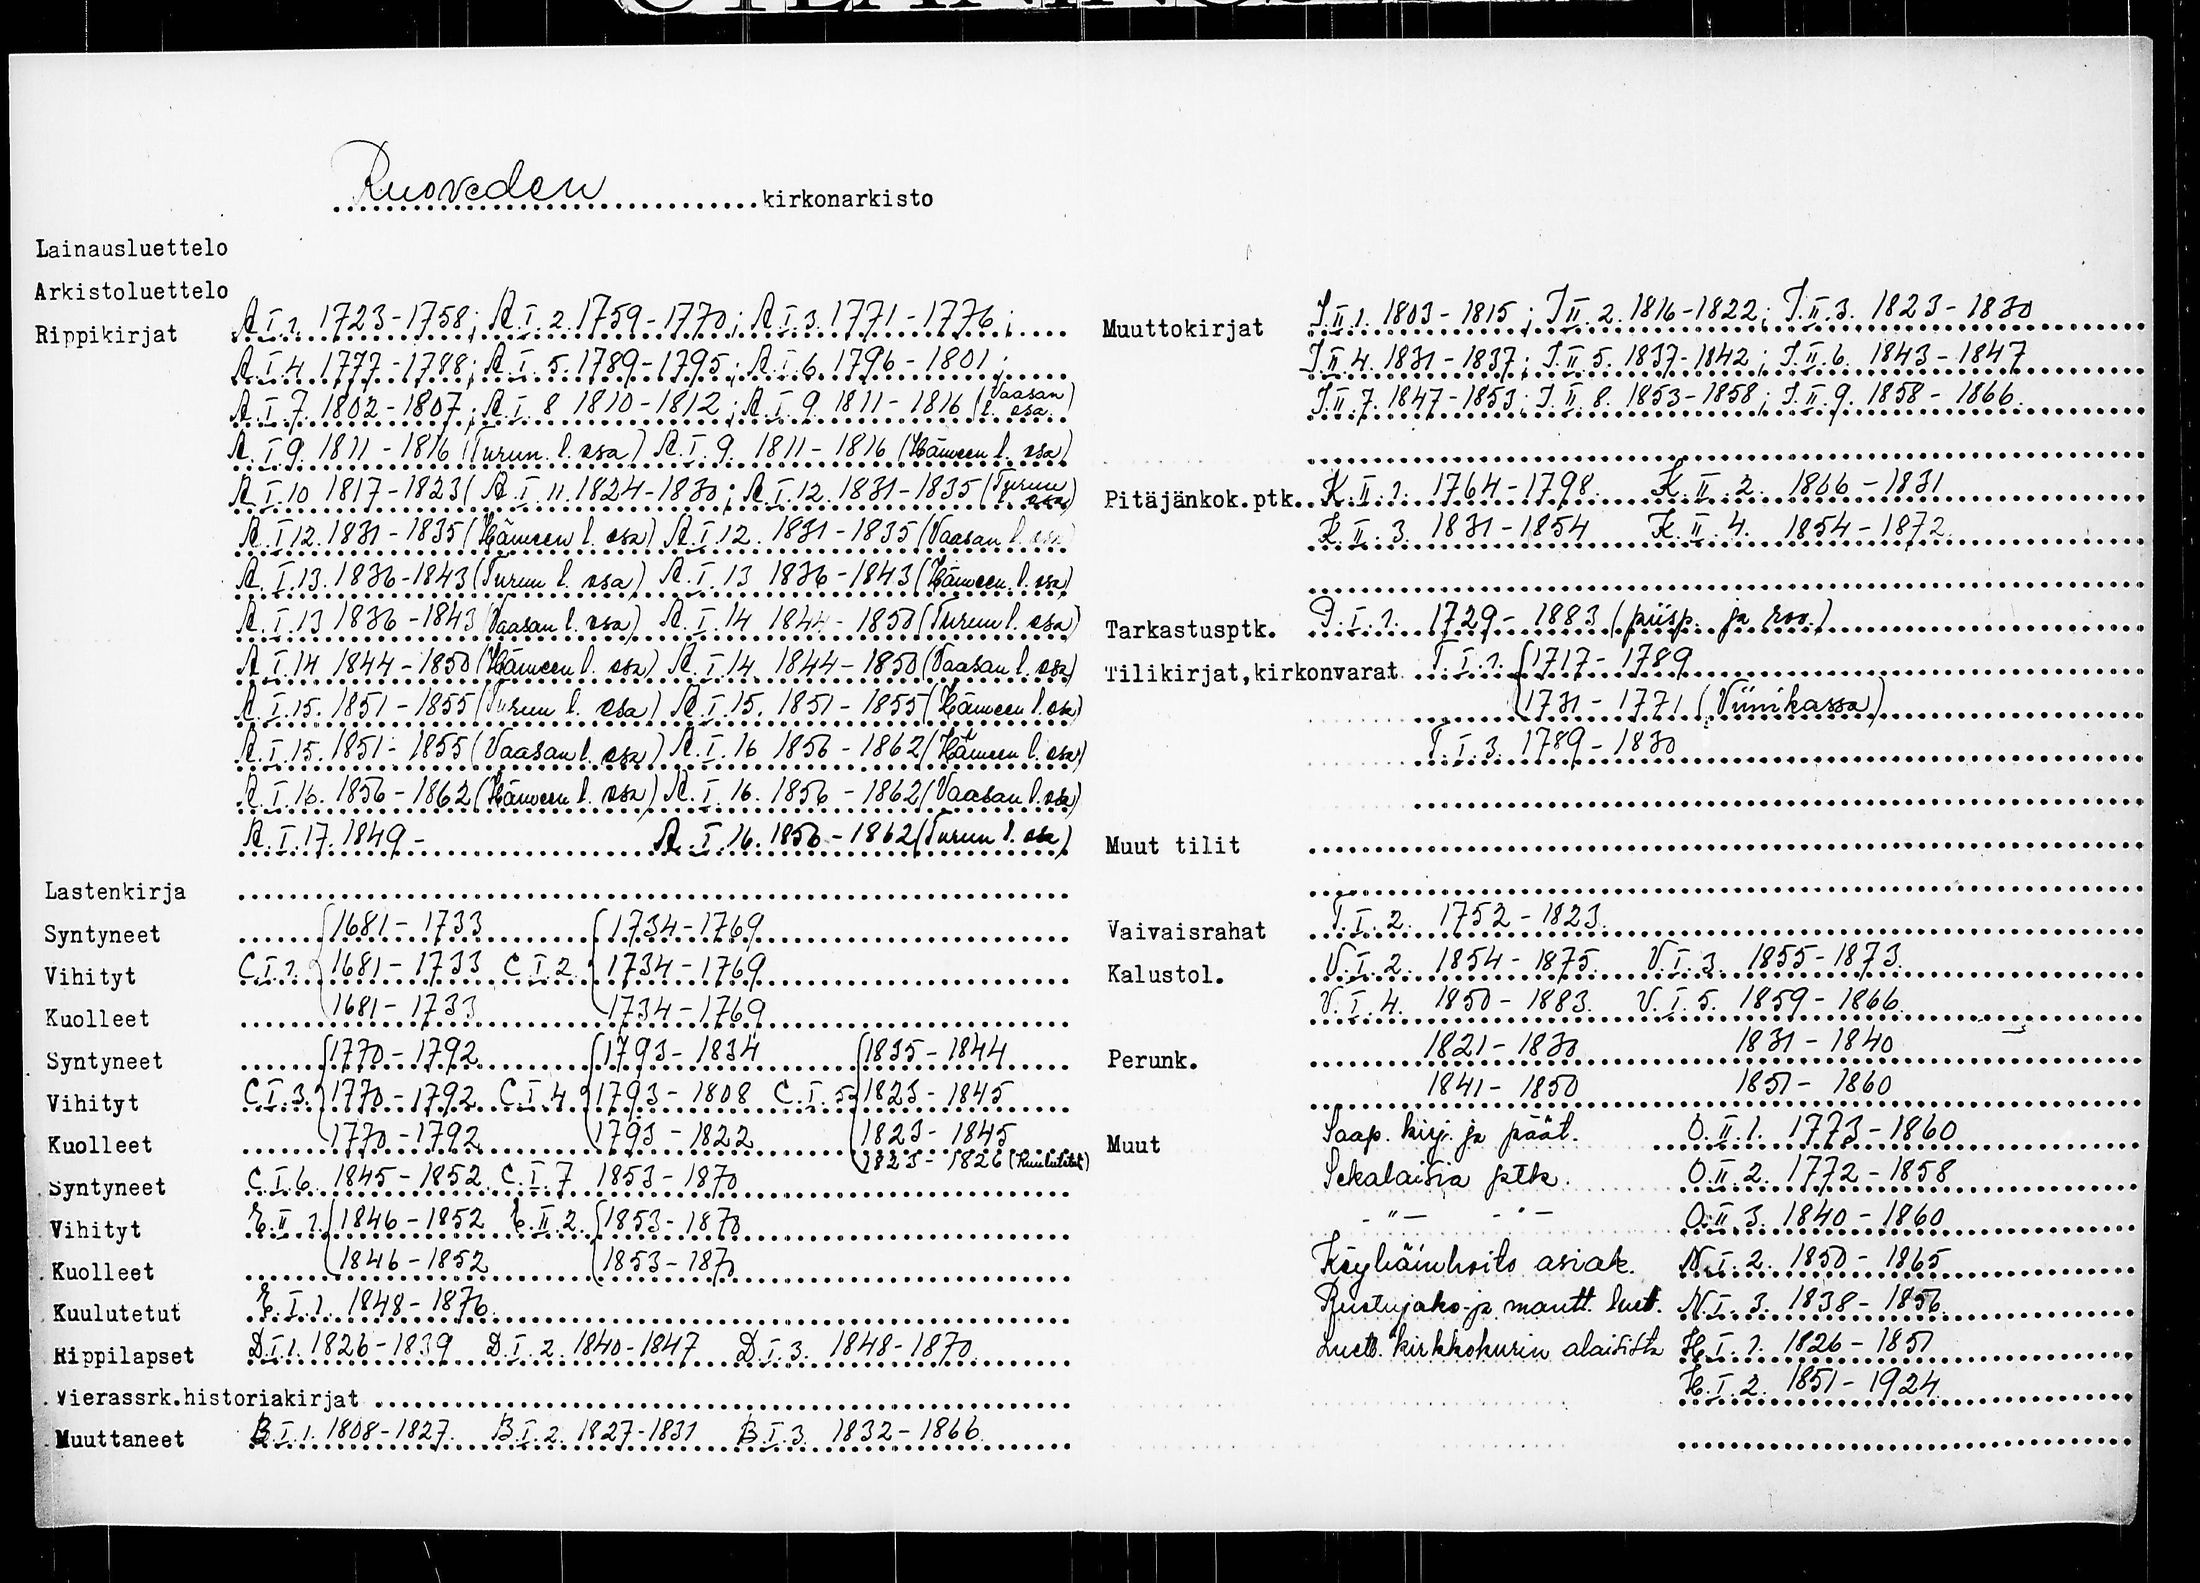 Ruoveden kirkonarkisto
Lainausluettelo
Arkistoluettelo
Rippikirjat A.I.1. 1723-1758; A.I.2. 1759-1770; A.I.3. 1771-1776;
A.I.4. 1777-1788; A.I.5. 1789-1795; A.I.6. 1796-1801;
A.I.7. 1802-1807; A.I.8 1810-1812; A.I.9. 1811-1816 (Vaasan l. osa)
A.I.9. 1811-1816 (Turun l. osa) A.I.9. 1811-1816 (Hämeen l. osa)
A.I.10 1817-1823( A.I.11. 1824-1830; A.I.12. 1831-1835 (Turun l. osa)
A.I.12. 1831-1835 (Hämeen l. osa) A.I.12. 1831-1835 (Vaasan l. osa)
A.I.13. 1836-1843 (Turun l. osa) A.I.13 1836-1843 (Hämeen l. osa)
A.I.13 1836-1843 (Vaasan l. osa) A.I.14 1844-1850 (Turun l. osa)
A.I.14 1844-1850 (Hämeen l. osa) A.I.14. 1844-1850 (Vaasan l. osa)
A.I.15. 1851-1855 (Turun l. osa) A.I.15. 1851-1855 (Hämeen l. osa)
A.I.15. 1851-1855 (Vaasan l. osa) A.I.16 1856-1862 (Hämeen l. osa)
A.I.16. 1856-1862 (Hämeen l. osa) A.I.16. 1856-1862 (Vaasan l. osa)
A.I.17. 1849- A.I.16. 1856-1862 (Turun l. osa)
Lastenkirja
Syntyneet 1681-1733 1734-1769
Vihityt C.I.1. 1681-1733 C.I.2. 1734-1769
Kuolleet 1681-1733 1734-1769
Syntyneet 1770-1792 1793-1834 1835-1844
Vihityt C.I.3. 1770-1792 C.I.4. 1793-1808 C.I.5. 1823-1845
Kuolleet 1770-1792 1793-1822 1823-1845
1823-1826 (Kuulutetut)
Syntyneet C.I.6. 1845-1852 C.I.7 1853-1870
Vihityt E.II.1. 1846-1852 E.II.2. 1853-1870
Kuolleet 1846-1852 1853-187
Kuulutetut E.I.1. 1848-1876.
Rippilapset D.I.1. 1826-1839 D.I.2. 1840-1847 D.I.3. 1848-1870.
Vierassrk.historiakirjat
Muuttaneet B.I.1. 1808-1827. B.I.2. 1827-1831 B.I.3. 1832-1866.
Muuttokirjat J.II.1. 1803-1815; J.II.2. 1816-1822; J.II.3. 1823-1830
J.II.4. 1831-1837; J.II.5. 1837-1842; J.II.6. 1843-1847
J.II.7. 1847-1853; J.II.8. 1853-1858; J.II.9. 1858-1866.
Pitäjänkok.ptk. K.II.1. 1764-1798. K.II.2. 1806-1831
K.II.3. 1831-1854 K.II.4. 1854-1872.
Tarkastusptk. I.1. 1729-1883 (piisp. ja rov.)
Tilikirjat,kirkonvarat T.I.1. 1717-1789
1731-1771 (Viinikassa)
T.I.3. 1789-1830
Muut tilit
Vaivaisrahat T.I.2. 1752-1823.
Kalustol. V.I.2. 1854-1875. V.I.3. 1855-1873.
V.I.4. 1850-1883. V.I.5. 1859-1866.
Perunk. 1821-1830 1831-1840
1841-1850 1851-1860
Muut Saap. kirj. ja päät. O.II.1. 1773-1860
Sekalaisia ptk. O.II.2. 1772-1858
-"- -"- O.II.3. 1840-1860
Köyhäinhoito asiak. N.I.2. 1850-1865
Ruotujako-ja mantt. luet. N.I.3. 1838-1856.
Luett. kirkkokurin alaisista H.I.1. 1826-1851
H.I.2. 1851-1924.